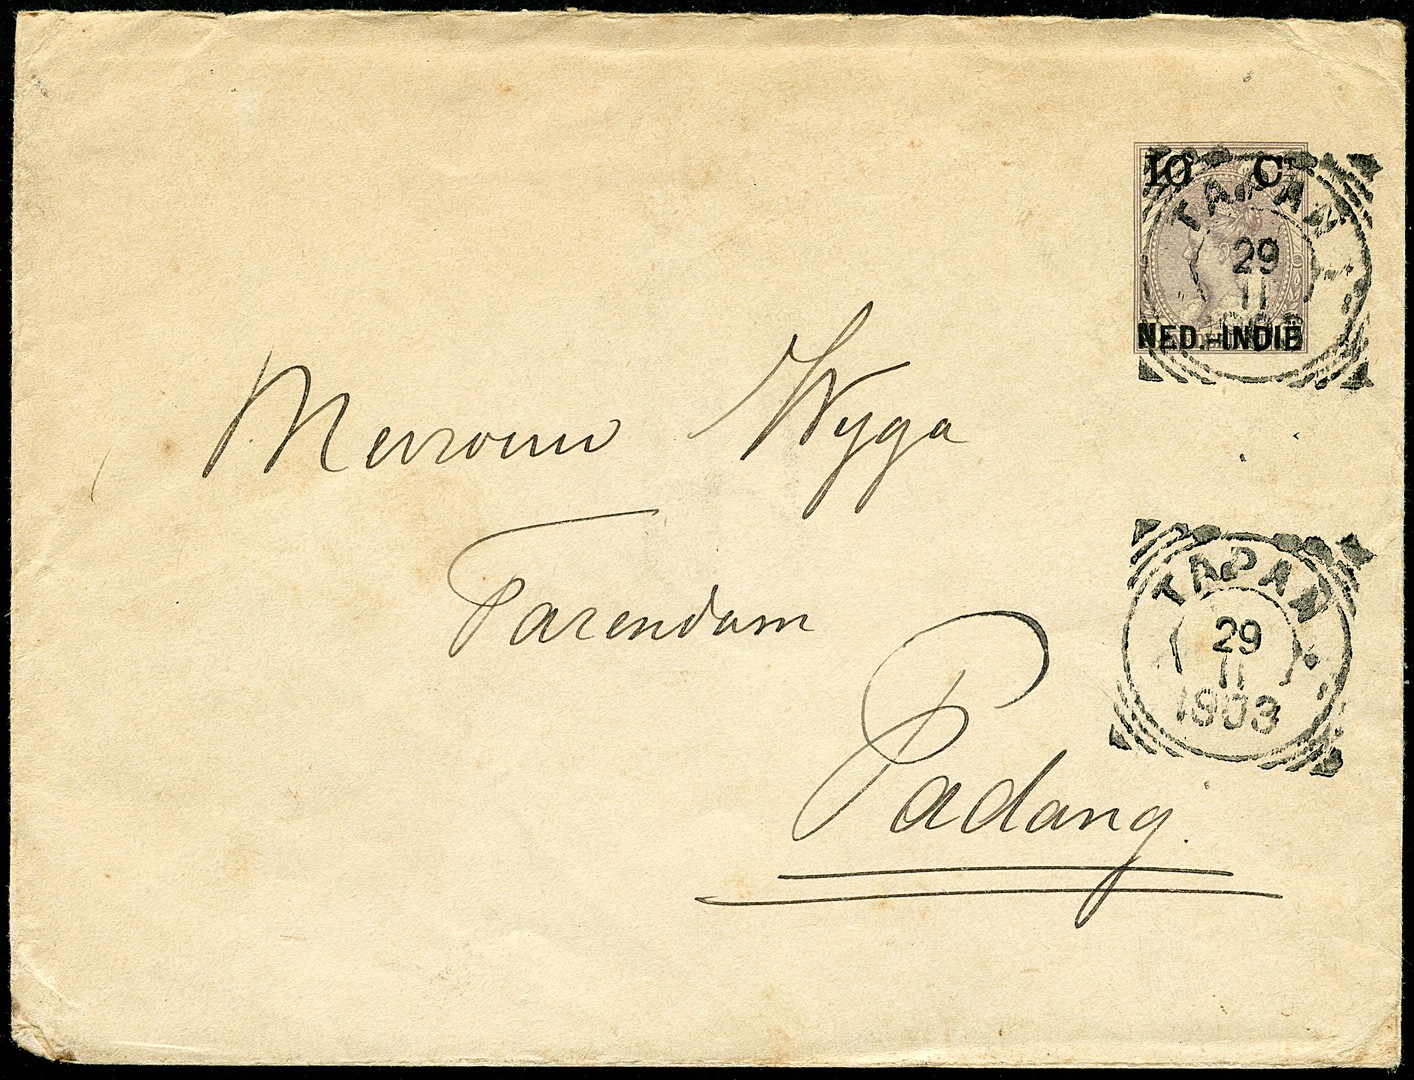 10 CT
NED.-INDIË
TAPAN
29
11
Mevrouw Wyga
Parendam
Padang.
TAPAN
29
11
1903